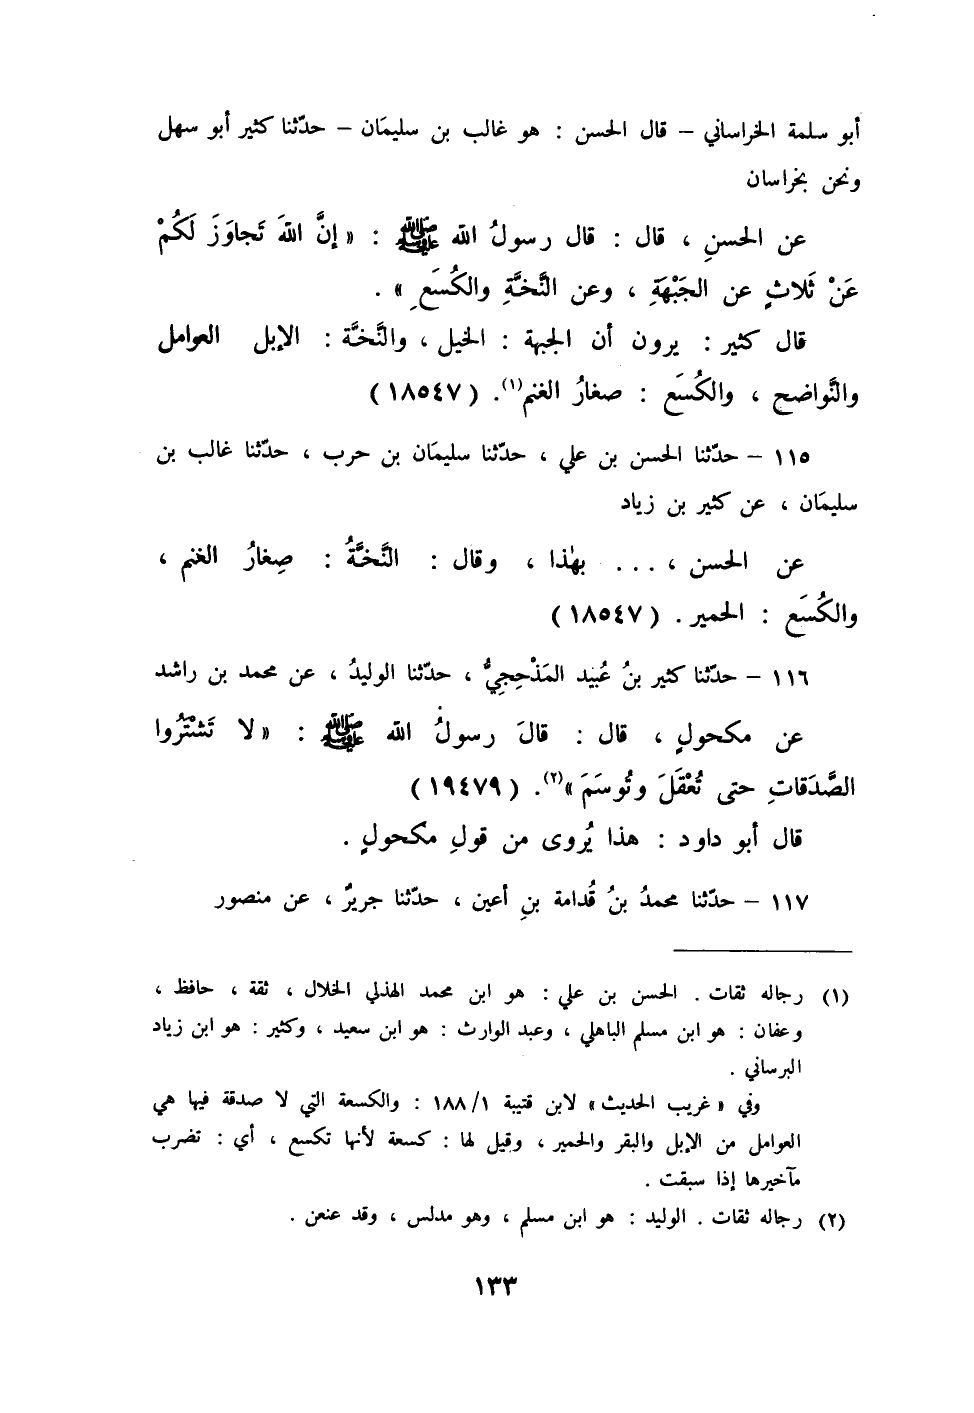 أبو سلمة الخراساني – قال الحسن : هو غالب بن سليمَان – حدّثنا كثير أبو سهل
ونحن بخراسان
عن الحسنِ ، قال : قال رسولُ الله ﷺ : « إنَّ اللهَ تَجاوَزَ لَكُمْ
عَنْ ثَلاثٍ عن الجَبْهَةِ ، وعن النَّخَّةِ والكُسَعِ » .
قال كثير : يرون أن الجبهة : الخيل ، والنَّخَّة : الإبل العوامل
والنَّواضح ، والكُسَع : صغارُ الغنم(١). (١٨٥٤٧)
١١٥ – حدّثنا الحسن بن علي ، حدّثنا سليمَان بن حرب ، حدّثنا غالب بن
سليمَان ، عن كثير بن زياد
عن الحسن ، ... بهٰذا ، وقال : النَّخَّةُ : صِغارُ الغنم ،
والكُسَع : الحمير . (١٨٥٤٧)
١١٦ – حدّثنا كثير بنُ عُبيد المَذْحِجِيُّ ، حدّثنا الوليدُ ، عن محمد بن راشد
عن مكحولٍ ، قال : قالَ رسولُ الله ﷺ : « لا تَشْتَرُوا
الصَّدَقاتِ حتى تُعْقَلَ وتُوسَمَ »(٢). (١٩٤٧٩)
قال أبو داود : هذا يُروى من قولِ مكحولٍ .
١١٧ – حدّثنا محمدُ بنُ قُدامة بنِ أعين ، حدّثنا جريرٌ ، عن منصور
(١) رجاله ثقات . الحسن بن علي : هو ابن محمد الهذلي الخلال ، ثقة ، حافظ ،
وعفان : هو ابن مسلم الباهلي ، وعبد الوارث : هو ابن سعيد ، وكثير : هو ابن زياد
البرساني .
وفي « غريب الحديث » لابن قتيبة ١/ ١٨٨ : والكسعة التي لا صدقة فيها هي
العوامل من الإبل والبقر والحمير ، وقيل لها : كسعة لأنها تكسع ، أي : تضرب
مآخيرها إذا سبقت .
(٢) رجاله ثقات . الوليد : هو ابن مسلم ، وهو مدلس ، وقد عنعن .
١٣٣